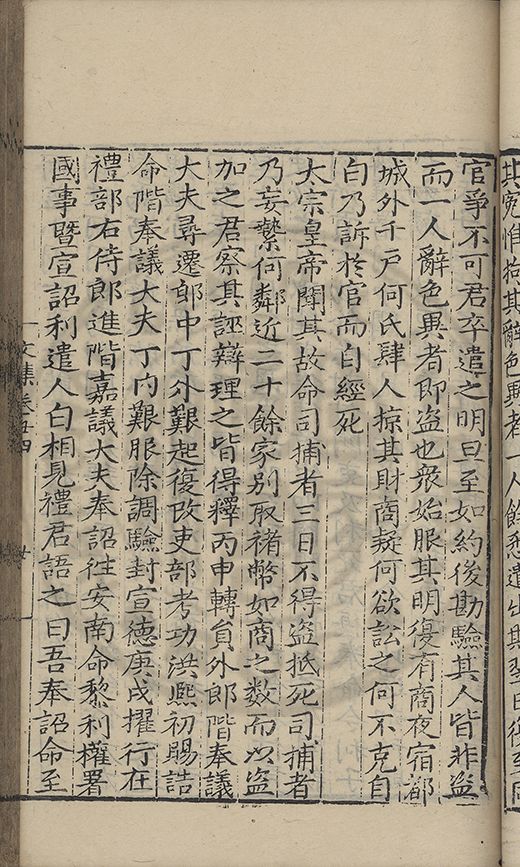 其寃惟拘其辭色異者一人餘悉遣出期翌日復至同
官爭不可君卒遣之明旦至如約後勘驗其人皆非盗
而一人辭色異者即盗也衆始服其明復有商夜宿都
城外千戶何氏肆人掠其財商疑何欲訟之何不克自
白乃訴於官而自經死
大宗皇帝聞其故命司捕者三日不得盗抵死司捕者
乃妄縶何鄰近二十餘家别取禇幣如商之数而以盗
加之君察其誣辯理之皆得釋丙申轉員外郎階奉議
大夫尋遷郎中丁外艱起復改吏部考功洪熙初賜誥
命階奉議大夫丁内艱服除調驗封宣德庚戌擢行在
禮部右侍郎進階嘉議大夫奉詔徃安南命黎利權署
國事暨宣詔利遣人白相見禮君語之曰吾奉詔命至
文集卷五四